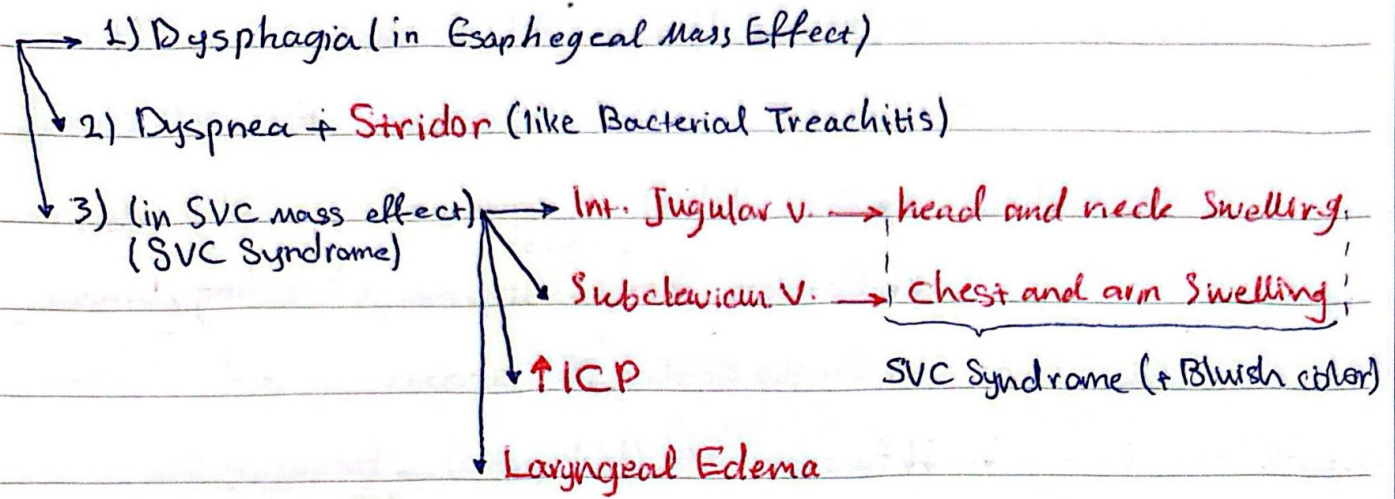 → 1) Dysphagia (in Esaphegeal Mass Effect)
2) Dyspnea + Stridor (like Bacterial Treachitis)
3) (in SVC mass effect) → Int. Jugular v. → head and neck Swelling
(SVC Syndrome)
Subclavian V. → Chest and arm Swelling
↑ ICP SVC Syndrome (+ Bluish color)
Laryngeal Edema